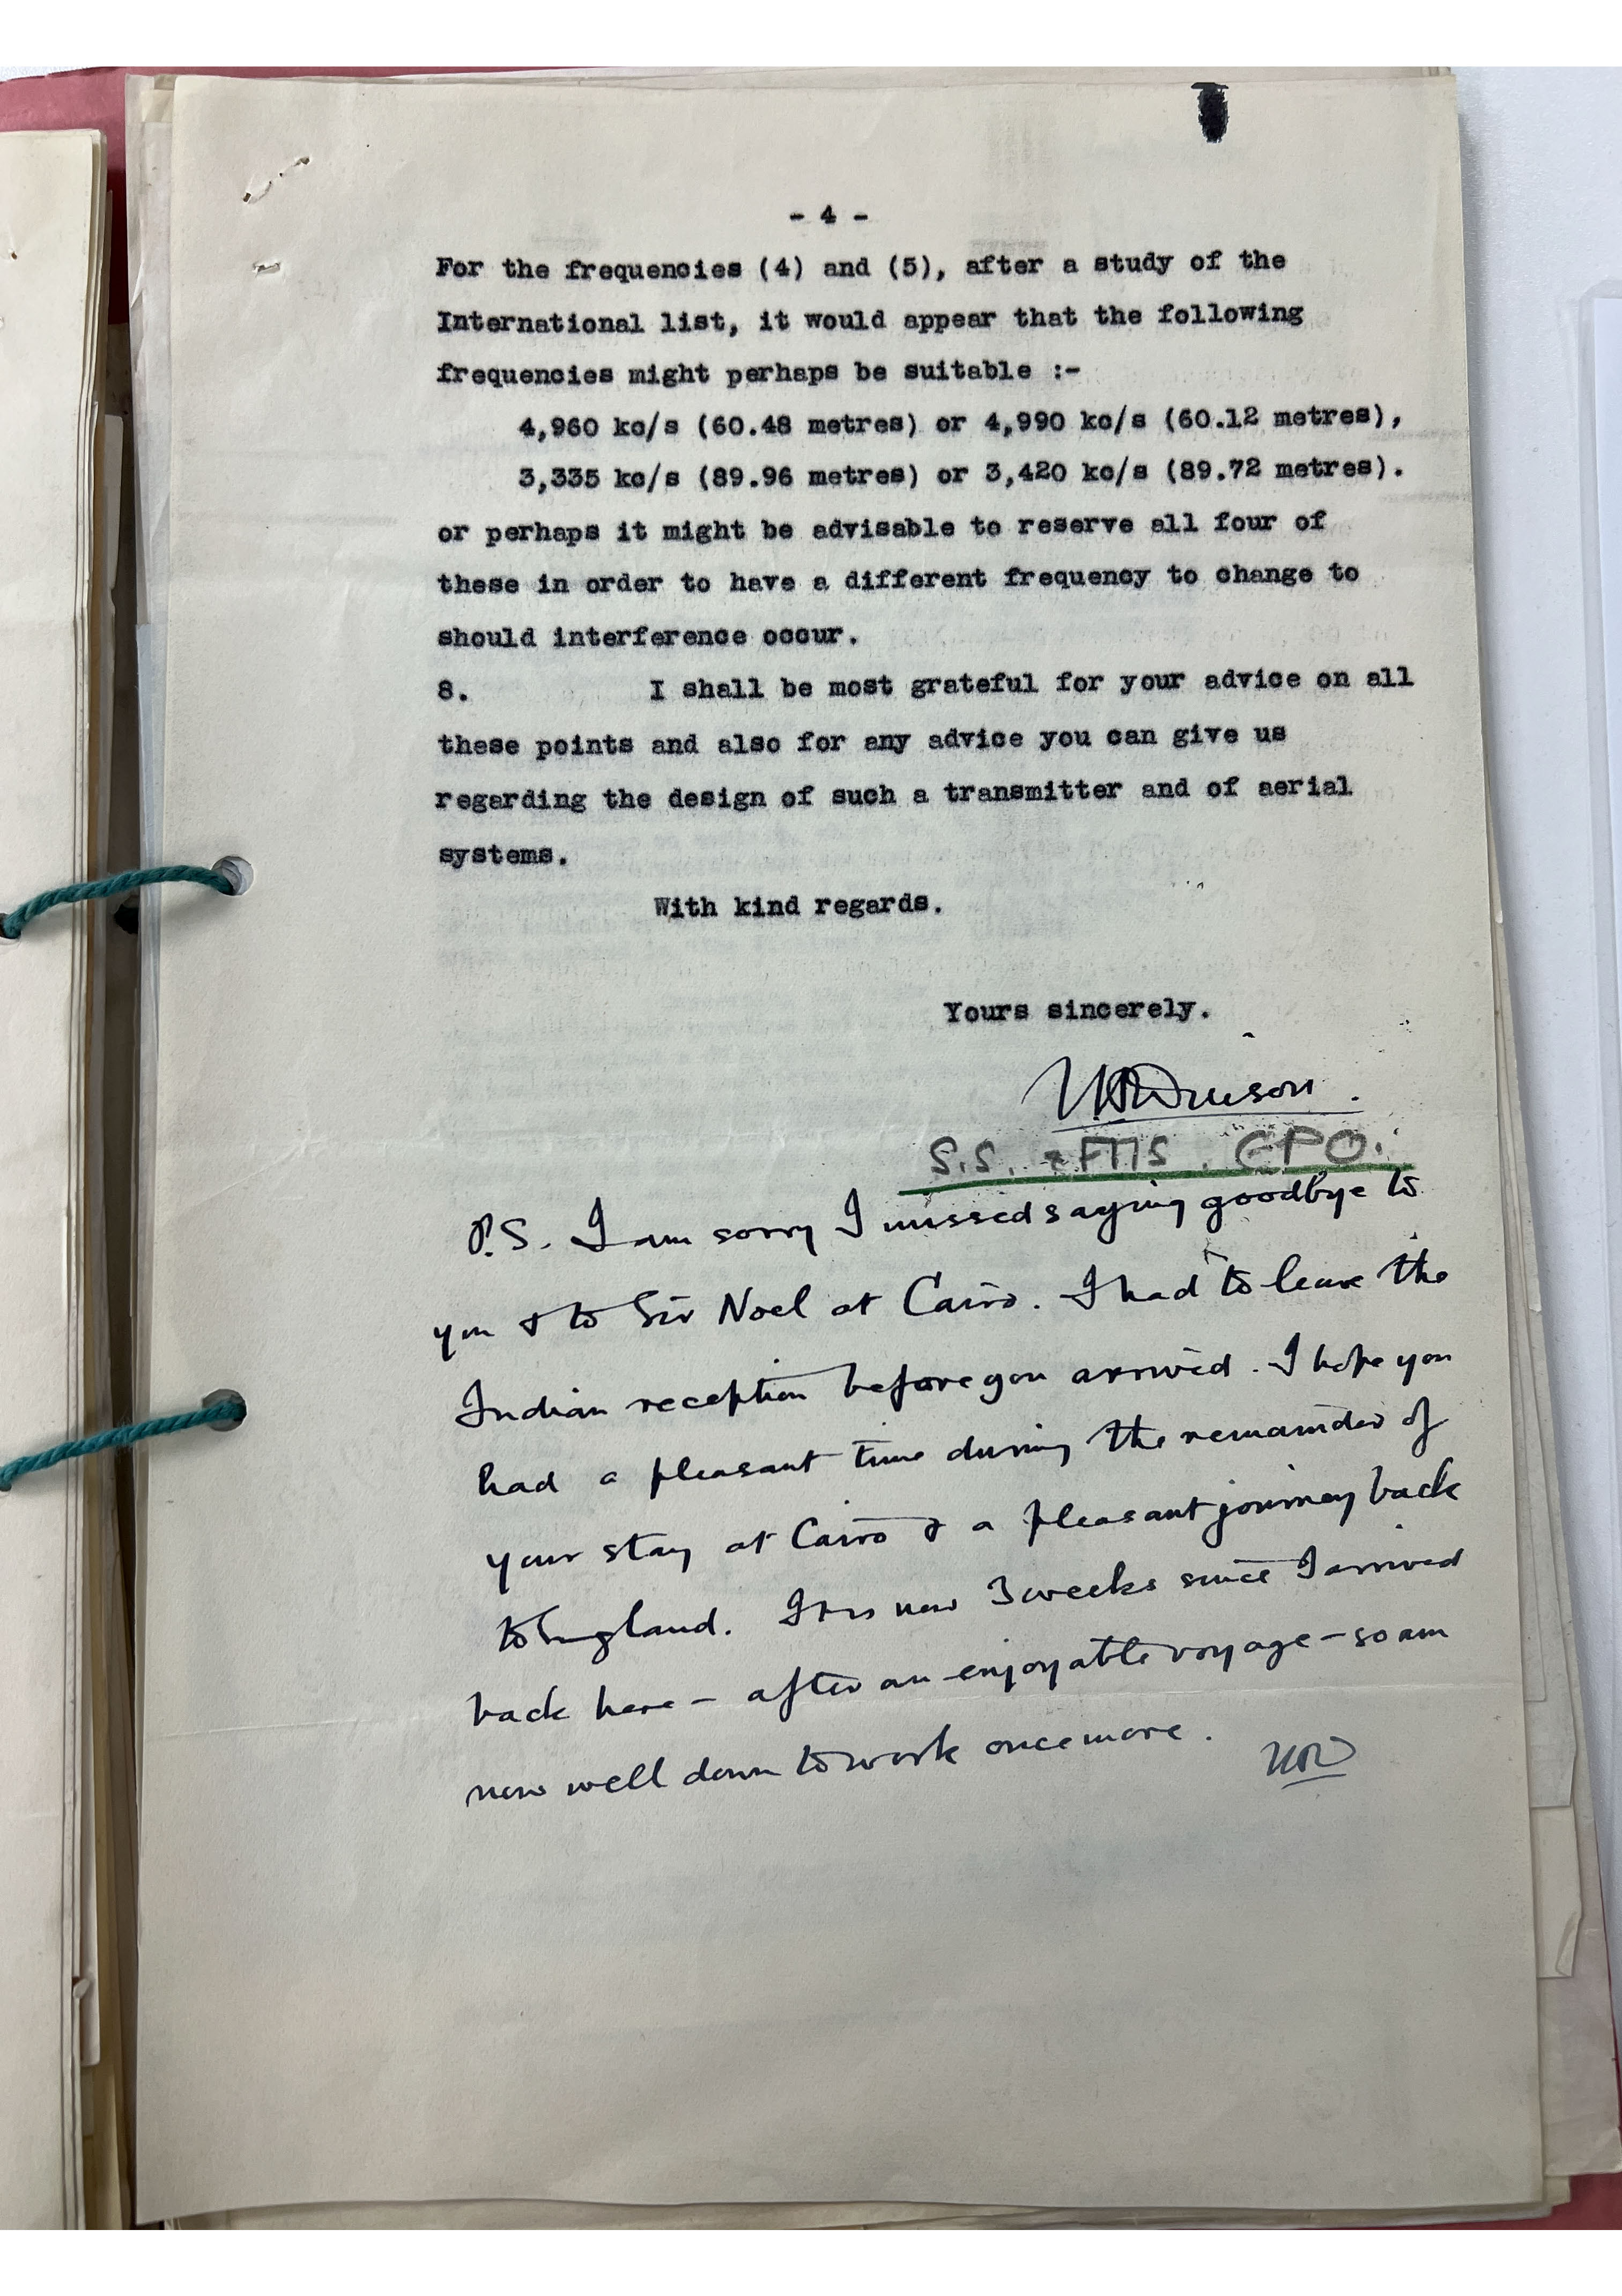 - 4 -
For the frequencies (4) and (5), after a study of the
International list, it would appear that the following
frequencies might perhaps be suitable :-
4,960 kc/s (60.48 metres) or 4,990 kc/s (60.12 metres),
3,335 kc/s (89.96 metres) or 3,420 kc/s (89.72 metres).
or perhaps it might be advisable to reserve all four of
these in order to have a different frequency to change to
should interference occur.
8. I shall be most grateful for your advice on all
these points and also for any advice you can give us
regarding the design of such a transmitter and of aerial
systems.
With kind regards.
Yours sincerely.
S.S. & FMS. GPO.
P.S. I am sorry I missed saying goodbye to
you & to Sir Noel at Cairo. I had to leave the
Indian reception before you arrived. I hope you
had a pleasant time during the remainder of
your stay at Cairo & a pleasant journey back
to England. It is now 3 weeks since I arrived
back here - after an enjoyable voyage - so am
now well down to work once more.